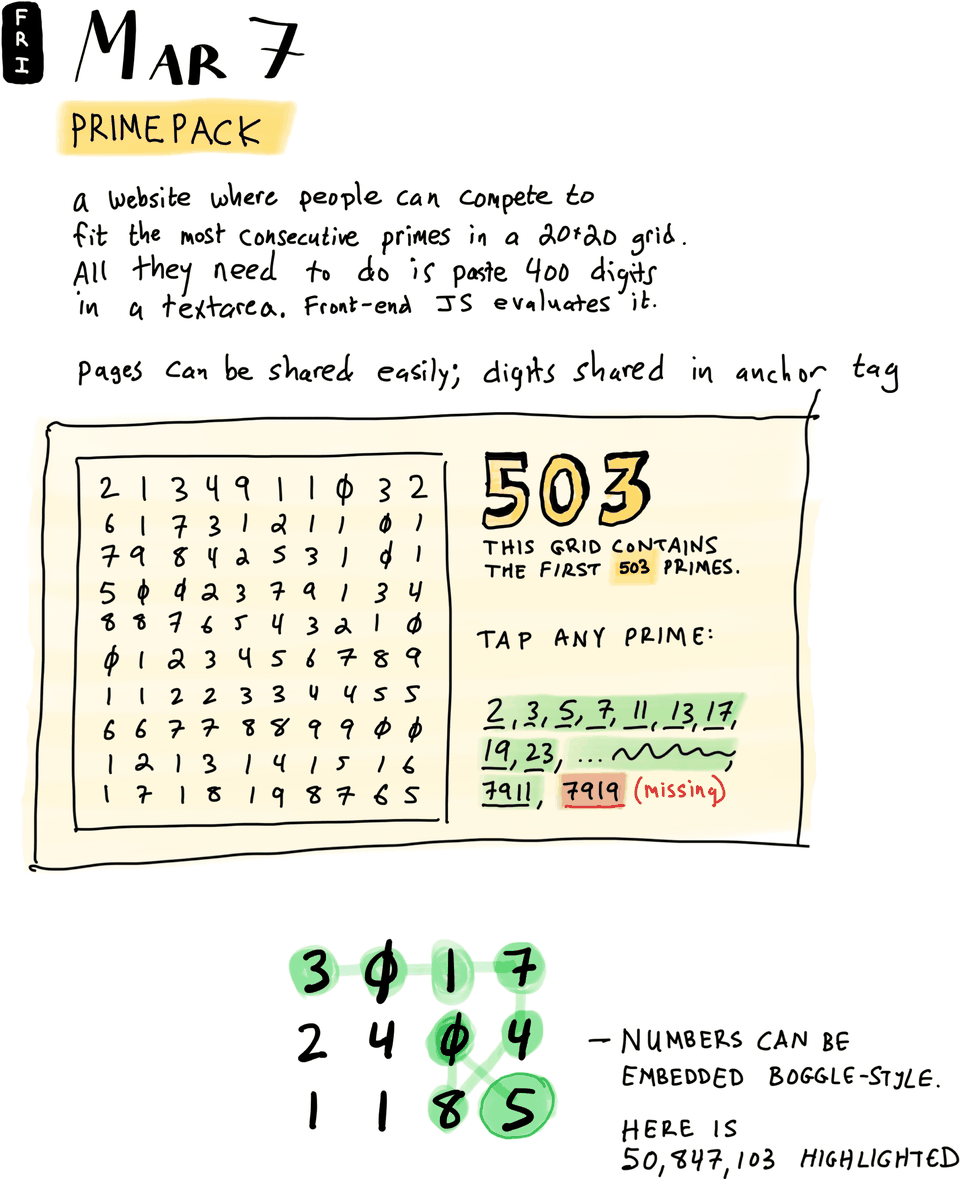 FRI
MAR 7
PRIMEPACK
a website where people can compete to
fit the most consecutive primes in a 20*20 grid.
All they need to do is paste 400 digits
in a textarea. Front-end JS evaluates it.
pages can be shared easily; digits shared in anchor tag
2 1 3 4 9 1 1 0 3 2
6 1 7 3 1 2 1 1 0 1
7 9 8 4 2 5 3 1 0 1
5 0 0 2 3 7 9 1 3 4
8 8 7 6 5 4 3 2 1 0
0 1 2 3 4 5 6 7 8 9
1 1 2 2 3 3 4 4 5 5
6 6 7 7 8 8 9 9 0 0
1 2 1 3 1 4 1 5 1 6
1 7 1 8 1 9 8 7 6 5
503
THIS GRID CONTAINS
THE FIRST 503 PRIMES.
TAP ANY PRIME:
2, 3, 5, 7, 11, 13, 17,
19, 23, ... ,
7911, 7919 (missing)
3 0 1 7
2 4 0 4
1 1 8 5
— NUMBERS CAN BE
EMBEDDED BOGGLE-STYLE.
HERE IS
50,847,103 HIGHLIGHTED